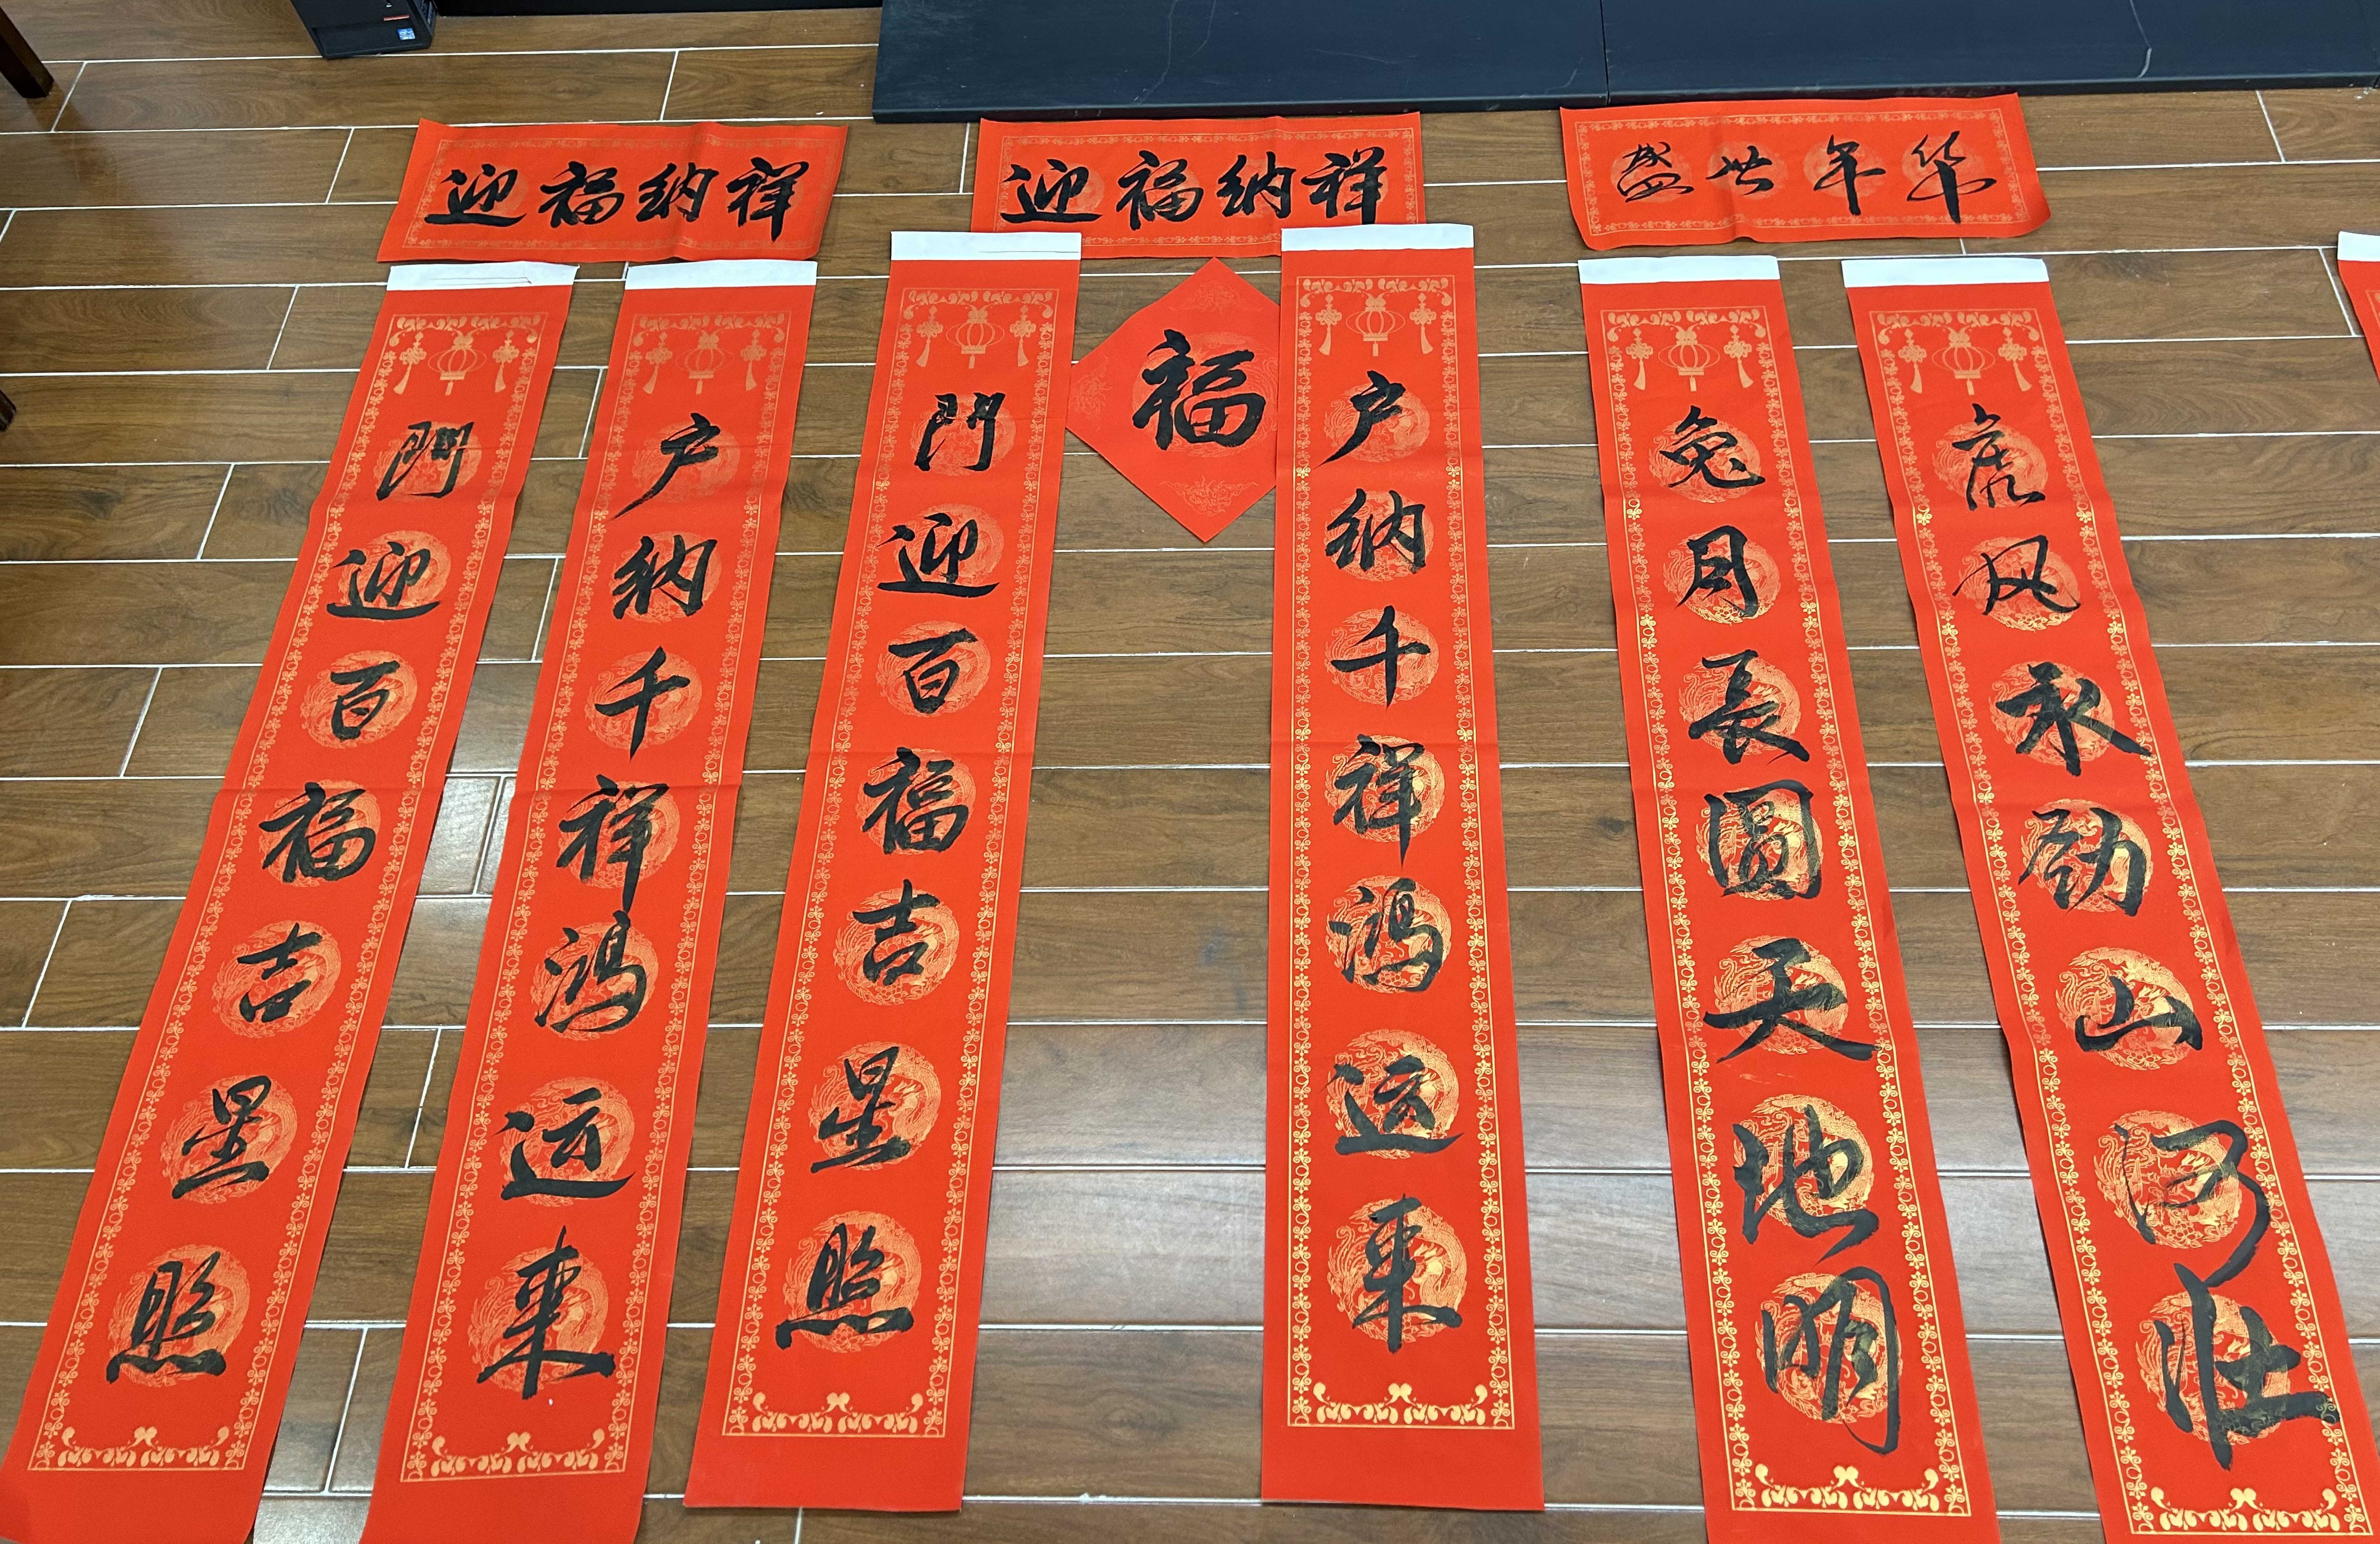 迎福纳祥
門迎百福吉星照
户纳千祥鸿运来
迎福纳祥
福
門迎百福吉星照
户纳千祥鸿运来
盛世年华
兔月長圆天地明
虎风永劲山河壮